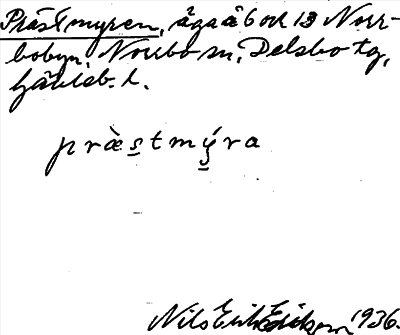 Prästmyren, äga å bok 13 Norr-
bobyn, Norrbo sn, Delsbo tg,
Gävleb. l.
præ̀stmýra
Nils Erik Erikson 1936.